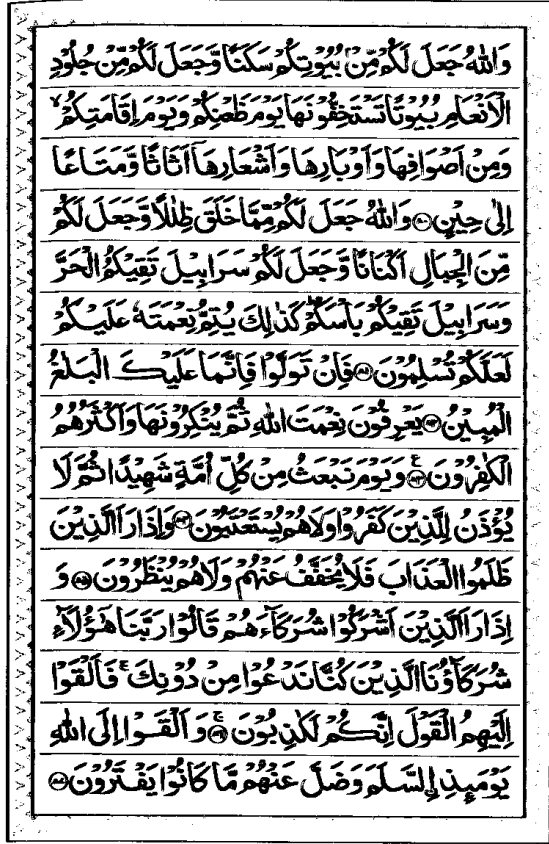 وَاللّٰهُ جَعَلَ لَكُمْ مِّنْۢ بُيُوْتِكُمْ سَكَنًا وَّجَعَلَ لَكُمْ مِّنْ جُلُوْدِ
الْاَنْعَامِ بُيُوْتًا تَسْتَخِفُّوْنَهَا يَوْمَ ظَعْنِكُمْ وَيَوْمَ اِقَامَتِكُمْ ۙ
وَمِنْ اَصْوَافِهَا وَاَوْبَارِهَا وَاَشْعَارِهَاۤ اَثَاثًا وَّمَتَاعًا
اِلٰى حِيْنٍ ۝۸۰ وَاللّٰهُ جَعَلَ لَكُمْ مِّمَّا خَلَقَ ظِلٰلًا وَّجَعَلَ لَكُمْ
مِّنَ الْجِبَالِ اَكْنَانًا وَّجَعَلَ لَكُمْ سَرَابِيْلَ تَقِيْكُمُ الْحَرَّ
وَسَرَابِيْلَ تَقِيْكُمْ بَاْسَكُمْ ؕ كَذٰلِكَ يُتِمُّ نِعْمَتَهٗ عَلَيْكُمْ
لَعَلَّكُمْ تُسْلِمُوْنَ ۝۸۱ فَاِنْ تَوَلَّوْا فَاِنَّمَا عَلَيْكَ الْبَلٰغُ
الْمُبِيْنُ ۝۸۲ يَعْرِفُوْنَ نِعْمَتَ اللّٰهِ ثُمَّ يُنْكِرُوْنَهَا وَاَكْثَرُهُمُ
الْكٰفِرُوْنَ ۝۸۳ ع وَيَوْمَ نَبْعَثُ مِنْ كُلِّ اُمَّةٍ شَهِيْدًا ثُمَّ لَا
يُؤْذَنُ لِلَّذِيْنَ كَفَرُوْا وَلَا هُمْ يُسْتَعْتَبُوْنَ ۝۸۴ وَاِذَا رَاَ الَّذِيْنَ
ظَلَمُوا الْعَذَابَ فَلَا يُخَفَّفُ عَنْهُمْ وَلَا هُمْ يُنْظَرُوْنَ ۝۸۵ وَ
اِذَا رَاَ الَّذِيْنَ اَشْرَكُوْا شُرَكَآءَهُمْ قَالُوْا رَبَّنَا هٰۤؤُلَآءِ
شُرَكَآؤُنَا الَّذِيْنَ كُنَّا نَدْعُوْا مِنْ دُوْنِكَ ۚ فَاَلْقَوْا
اِلَيْهِمُ الْقَوْلَ اِنَّكُمْ لَكٰذِبُوْنَ ۝۸۶ ۚ وَاَلْقَوْا اِلَى اللّٰهِ
يَوْمَىِٕذِ ِۨالسَّلَمَ وَضَلَّ عَنْهُمْ مَّا كَانُوْا يَفْتَرُوْنَ ۝۸۷